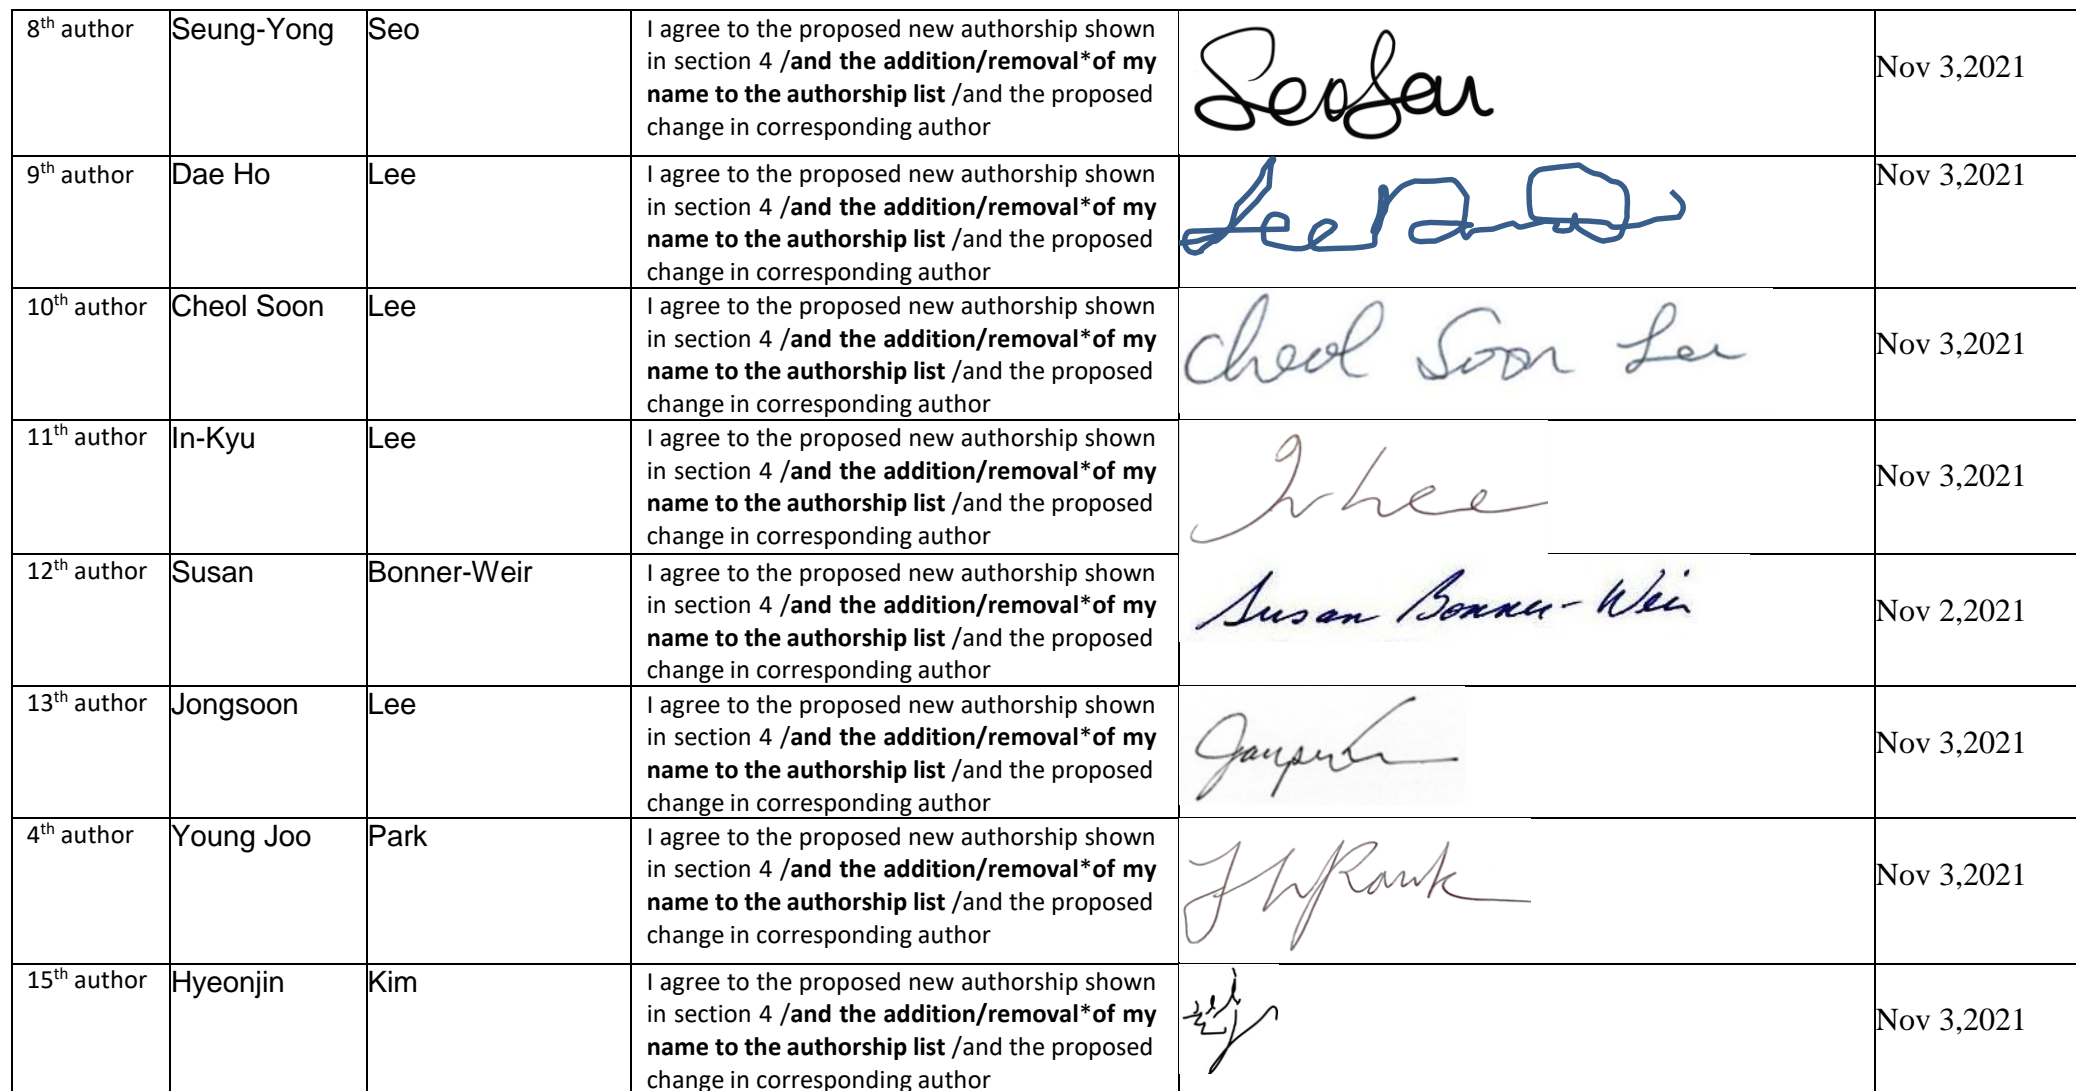 8th author Seung-Yong Seo I agree to the proposed new authorship shown
in section 4 /and the addition/removal*of my
name to the authorship list /and the proposed
change in corresponding author
Nov 3,2021
9th author Dae Ho Lee I agree to the proposed new authorship shown
in section 4 /and the addition/removal*of my
name to the authorship list /and the proposed
change in corresponding author
Nov 3,2021
10th author Cheol Soon Lee I agree to the proposed new authorship shown
in section 4 /and the addition/removal*of my
name to the authorship list /and the proposed
change in corresponding author
Cheol Soon Lee
Nov 3,2021
11th author In-Kyu Lee I agree to the proposed new authorship shown
in section 4 /and the addition/removal*of my
name to the authorship list /and the proposed
change in corresponding author
Nov 3,2021
12th author Susan Bonner-Weir I agree to the proposed new authorship shown
in section 4 /and the addition/removal*of my
name to the authorship list /and the proposed
change in corresponding author
Susan Bonner-Weir
Nov 2,2021
13th author Jongsoon Lee I agree to the proposed new authorship shown
in section 4 /and the addition/removal*of my
name to the authorship list /and the proposed
change in corresponding author
Nov 3,2021
4th author Young Joo Park I agree to the proposed new authorship shown
in section 4 /and the addition/removal*of my
name to the authorship list /and the proposed
change in corresponding author
Nov 3,2021
15th author Hyeonjin Kim I agree to the proposed new authorship shown
in section 4 /and the addition/removal*of my
name to the authorship list /and the proposed
change in corresponding author
Nov 3,2021